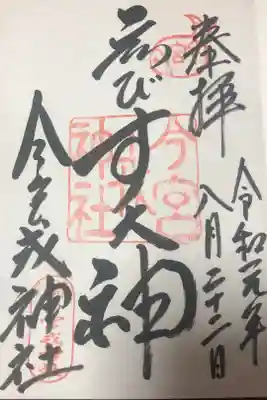 奉拝
令和元年
八月二十二日
ゑびす大神
今宮戎神社